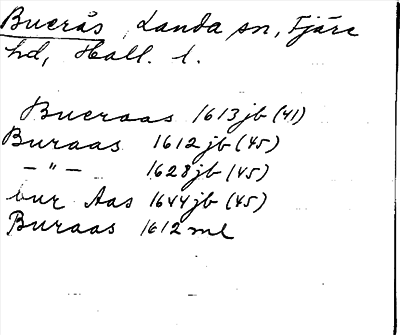 Buerås, Landa sn, Fjäre
hd, Hall. l.
Bueraas 1613 jb (41)
Buraas 1612 jb (45)
— " — 1628 jb (45)
bur Aas 1644 jb (45)
Buraas 1612 ml